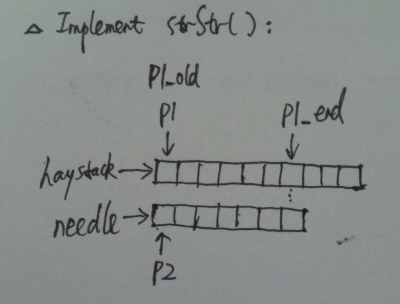 △ Implement strStr():
P1_old
P1 P1_end
haystack
needle
P2